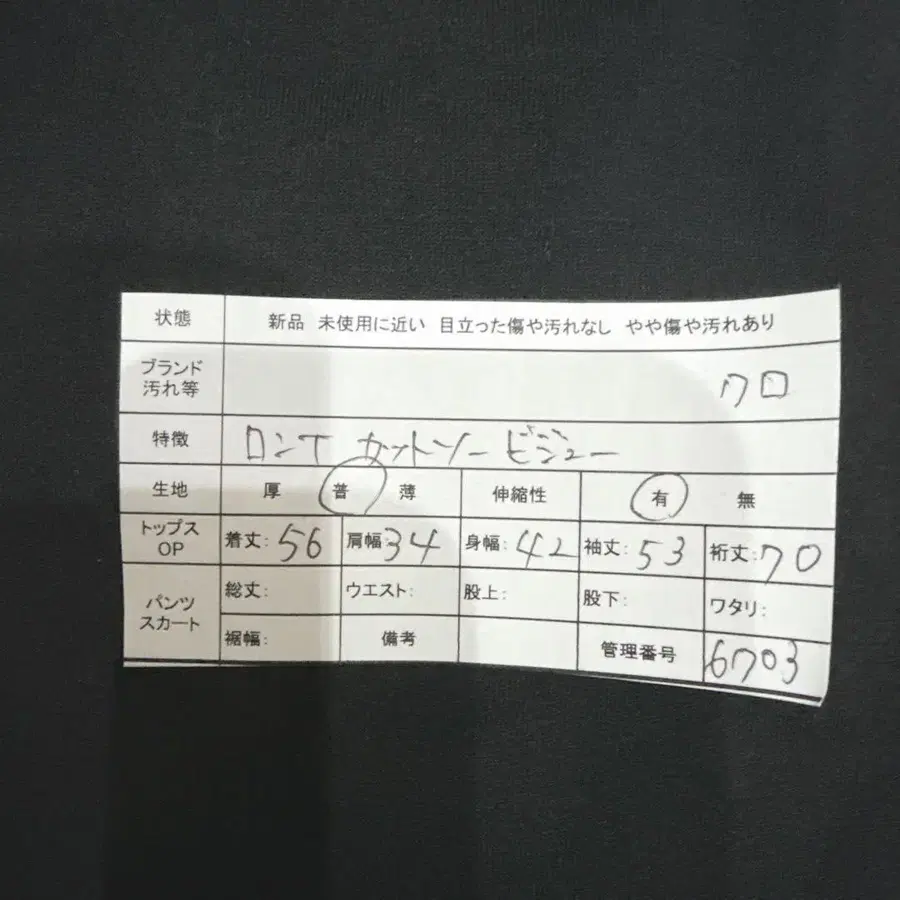 状態 新品 未使用に近い 目立った傷や汚れなし やや傷や汚れあり
ブランド
汚れ等 クロ
特徴 ロンT カットソー ビジュー
生地 厚 普 薄 伸縮性 有 無
トップス
OP 着丈: 56 肩幅: 34 身幅: 42 袖丈: 53 裄丈: 70
パンツ
スカート 総丈: ウエスト: 股上: 股下: ワタリ:
裾幅: 備考 管理番号 6703